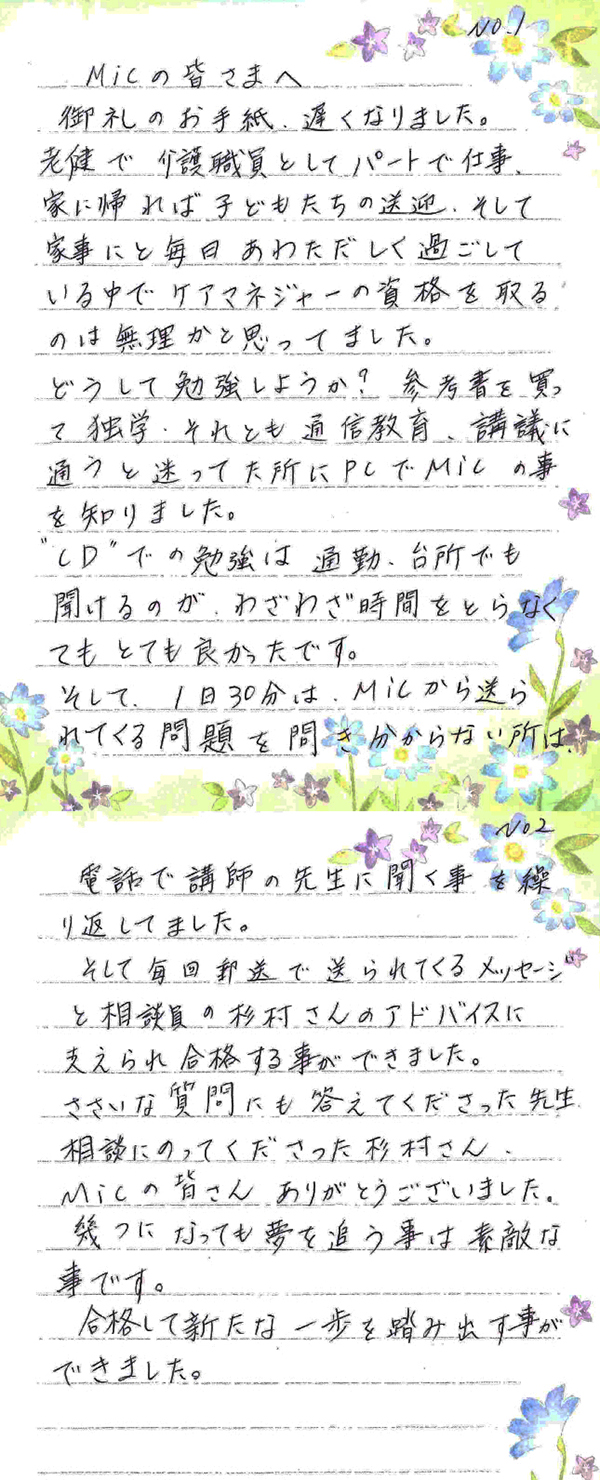 No.1
Micの皆さまへ
御礼のお手紙、遅くなりました。
老健で介護職員としてパートで仕事、
家に帰れば子どもたちの送迎、そして
家事にと毎日あわただしく過ごして
いる中でケアマネジャーの資格を取る
のは無理かと思ってました。
どうして勉強しようか? 参考書を買っ
て独学・それとも通信教育、講議に
通うと迷ってた所にPCでMicの事
を知りました。
"CD"での勉強は通勤、台所でも
聞けるのが、わざわざ時間をとらなく
てもとても良かったです。
そして、1日30分は、Micから送ら
れてくる問題を問き分からない所は、
No2
電話で講師の先生に聞く事を繰
り返してました。
そして毎回郵送で送られてくるメッセージ
と相談員の杉村さんのアドバイスに
支えられ合格する事ができました。
ささいな質問にも答えてくださった先生、
相談にのってくださった杉村さん、
Micの皆さんありがとうございました。
幾つになっても夢を追う事は素敵な
事です。
合格して新たな一歩を踏み出す事が
できました。